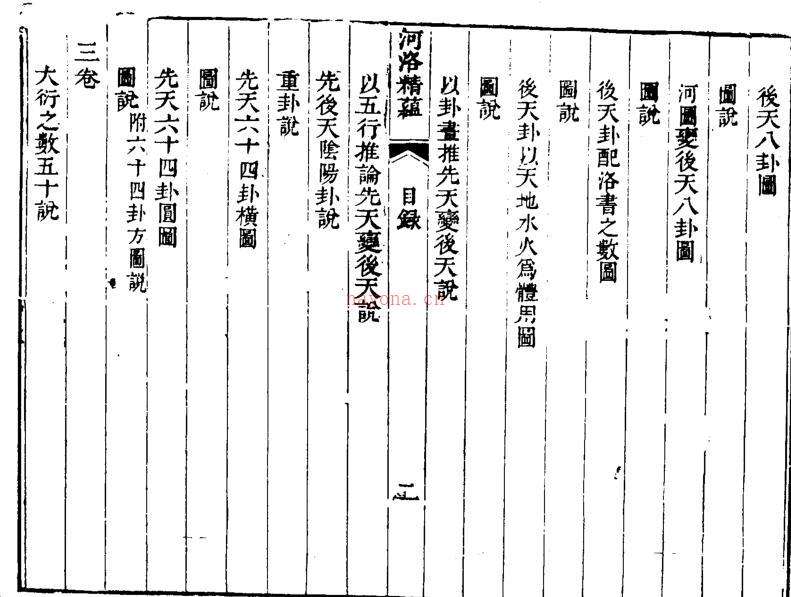 後天八卦圖
圖說
河圖變後天八卦圖
圖說
後天卦配洛書之數圖
圖說
後天卦以天地水火爲體用圖
圖說
以卦畫推先天變後天說
河洛精蘊
目録
二
以五行推論先天變後天說
先後天陰陽卦說
重卦說
先天六十四卦橫圖
圖說
先天六十四卦圓圖
圖說附六十四卦方圖說
三卷
大衍之數五十說
nayona.cn